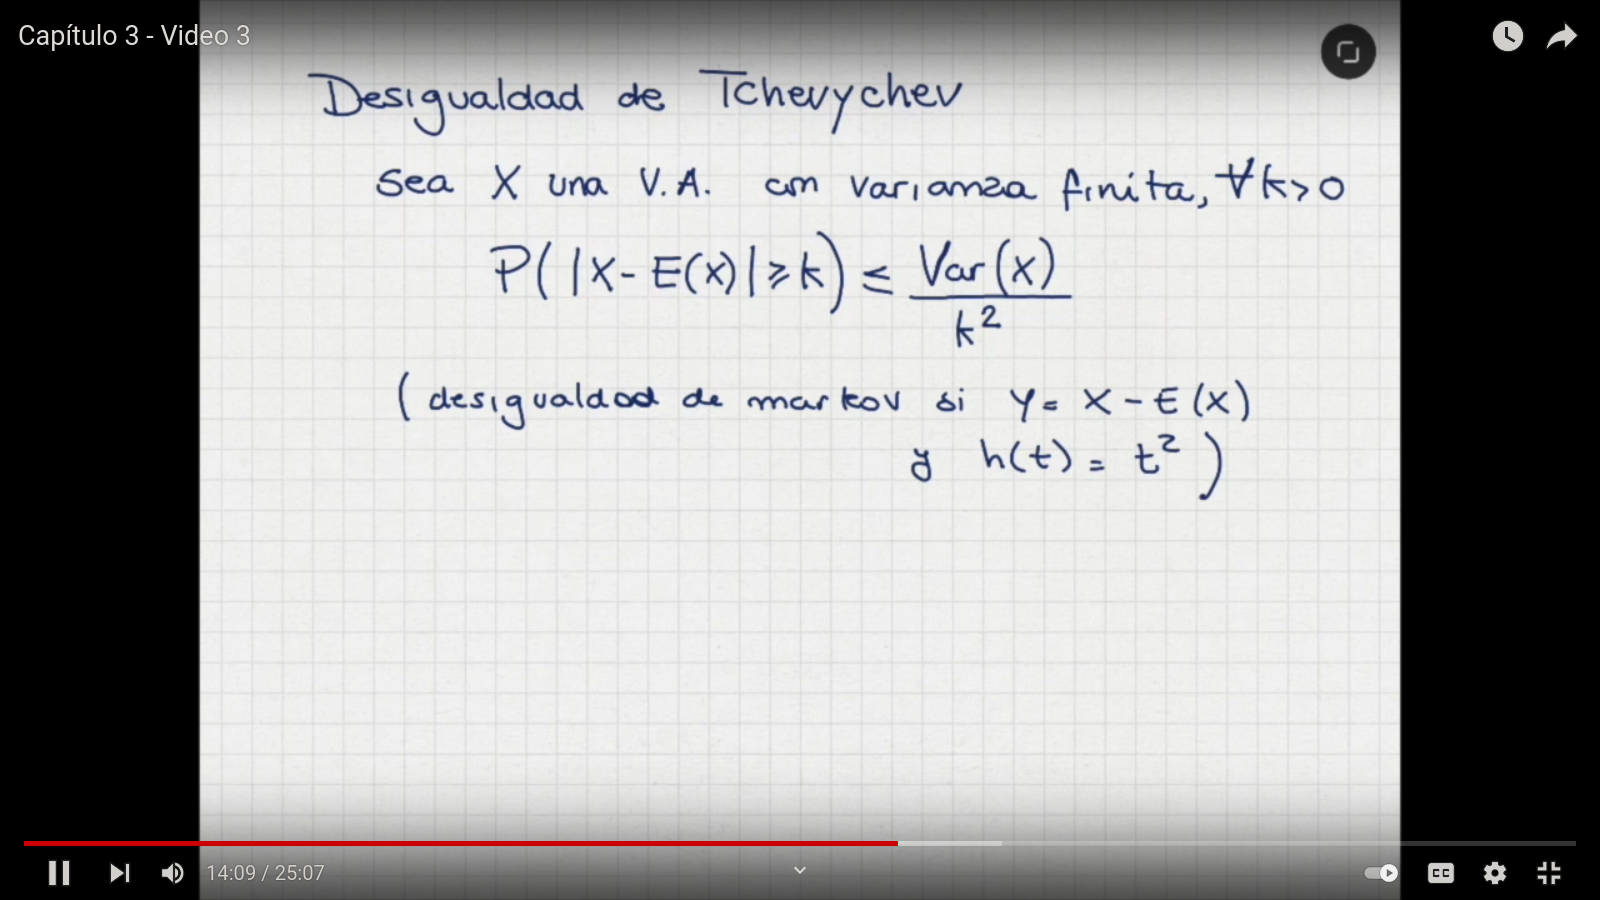 Capítulo 3 - Video 3
Desigualdad de Tchevychev
sea X una V.A. con varianza finita, ∀k>0
P( |X - E(x)| ≥ k) ≤ Var(x) / k²
( desigualdad de markov si Y = X - E(x)
y h(t) = t² )
14:09 / 25:07
CC